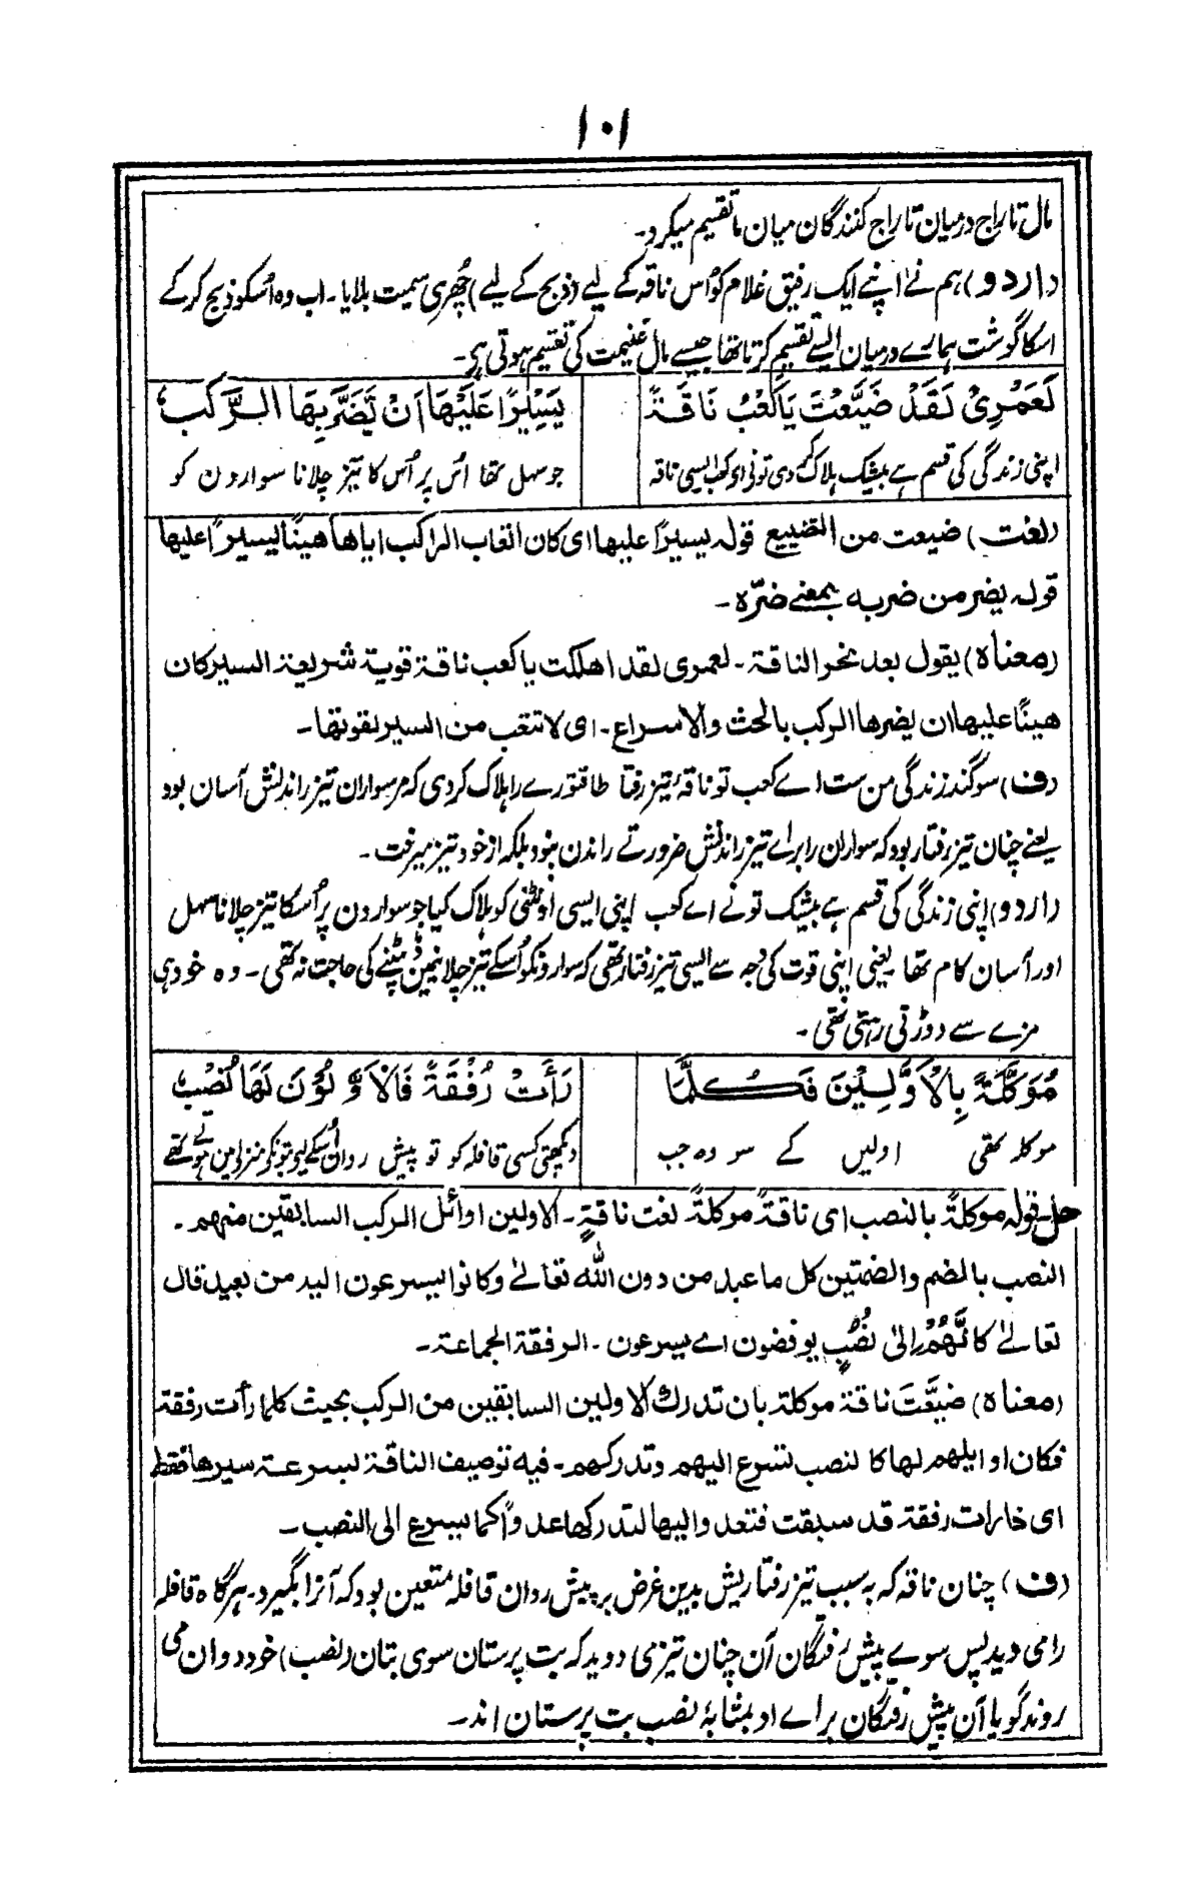 ۱۰۱
مال تاراج درمیان تاراج کنندگان میان ما تقسیم میکرد۔
(اردو) ہم نے اپنے ایک رفیق غلام کو اُس ناقہ کے لیے (ذبح کے لیے) چُھری سمیت بلایا۔ اب وہ اُسکو ذبح کر کے
اسکا گوشت ہمارے درمیان ایسے تقسیم کرتا تھا جیسے مال غنیمت کی تقسیم ہوتی ہر۔
لَعَمْرِیْ لَقَدْ ضَیَّعْتَ یَا کَعْبُ نَاقَۃً یَسِیْرًا عَلَیْهَا اَنْ یَّضَرِّبِهَا الرَّکْبُ
اپنی زندگی کی قسم ہے بیشک ہلاک کر دی تو نی او کعب ایسی ناقہ جو سہل تھا اُس پر اُس کا تیز چلانا سواردن کو
(لغت) ضیعت من التضییع قولہ یسیرًا علیها ای کان اتعاب الراکب ایاها هینًا یسیرًا علیها
قولہ یضر من ضربہ بمعنے ضرّہ۔
(معناہ) یقول بعد نحر الناقۃ۔ لعمری لقد اهلکت یا کعب ناقۃ قویۃ شریعۃ السیر کان
هینًا علیها ان یضرها الرکب بالحث والاسراع۔ ای لا تتعب من السیر لقوتها۔
(ف) سوگند زندگی من ست اے کعب تو ناقۂ تیز رفتا طاقتورے را ہلاک کردی کہ مر سواران تیز راندنش آسان بود
یعنے چنان تیز رفتار بود کہ سواران را براے تیز راندنش ضرورتے راندن نبود بلکہ از خود تیز میرفت۔
(اردو) اپنی زندگی کی قسم ہے بیشک تو نے اے کعب اپنی ایسی اونٹنی کو ہلاک کیا جو سواردن پر اُسکا تیز چلانا سہل
اور آسان کام تھا یعنی اپنی قوت کی وجہ سے ایسی تیز رفتار تھی کہ سوارونکو اُسکے تیز چلانیمین ڈپٹنے کی حاجت نہ تھی۔ وہ خود ہی
مزے سے دوڑتی رہتی تھی۔
مُوَکَّلَۃً بِالْاَوَّلِیْنَ فَکُلَّمَا رَأَتْ رُفْقَۃً فَالْاَوَّلُوْنَ لَهَا نُصْبُ
موکلہ تھی اولیں کے سو وہ جب دیکھتی کسی قافلہ کو تو پیش روان اُسکے لیے
حل۔ قولہ موکلۃً بالنصب ای ناقۃً موکلۃً نعت ناقۃٍ۔ الاولین اوائل الرکب السابقین منهم۔
النصب بالضم والضمتین کل ما عبد من دون اللہ تعالےٰ وکانوا یسرعون الیہ من بعید قال
تعالےٰ کَاَنَّهُمْ اِلیٰ نُصُبٍ یوفضون اے یسرعون۔ الرفقۃ الجماعۃ۔
(معناہ) ضیَّعْتَ ناقۃ موکلۃ بان تدرک الاولین السابقین من الرکب بحیث کلما رأت رفقۃ
فکان اوایلهم لها کالنصب تسرع الیهم وتدرکهم۔ فیہ توصیف الناقۃ بسرعۃ سیرها فقط
ای اذا رات رفقۃ قد سبقت فتعدوا الیها لتدرکها عدوًا کما یسرع الی النصب۔
(ف) چنان ناقہ کہ بہ سبب تیز رفتاریش بدین غرض بر پیش روان قافلہ متعین بود کہ آنرا بگیرد۔ ہر گاہ قافلہ
را می دید پس سوے پیش رفتگان آن چنان تیزی دوید کہ بت پرستان سوی بتان (نصب) خود دوان می
روند گویا آن پیش رفتگان براے او بمثابۂ نصب بت پرستان اند۔